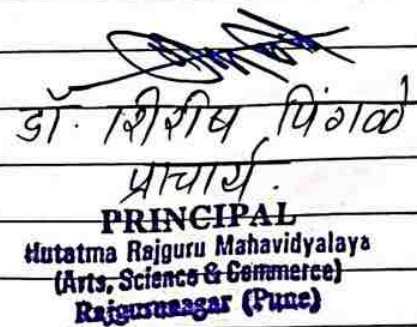 डॉ. शिरीष पिंगळे
प्राचार्य.
PRINCIPAL
Hutatma Rajguru Mahavidyalaya
(Arts, Science & Commerce)
Rajgurunagar (Pune)